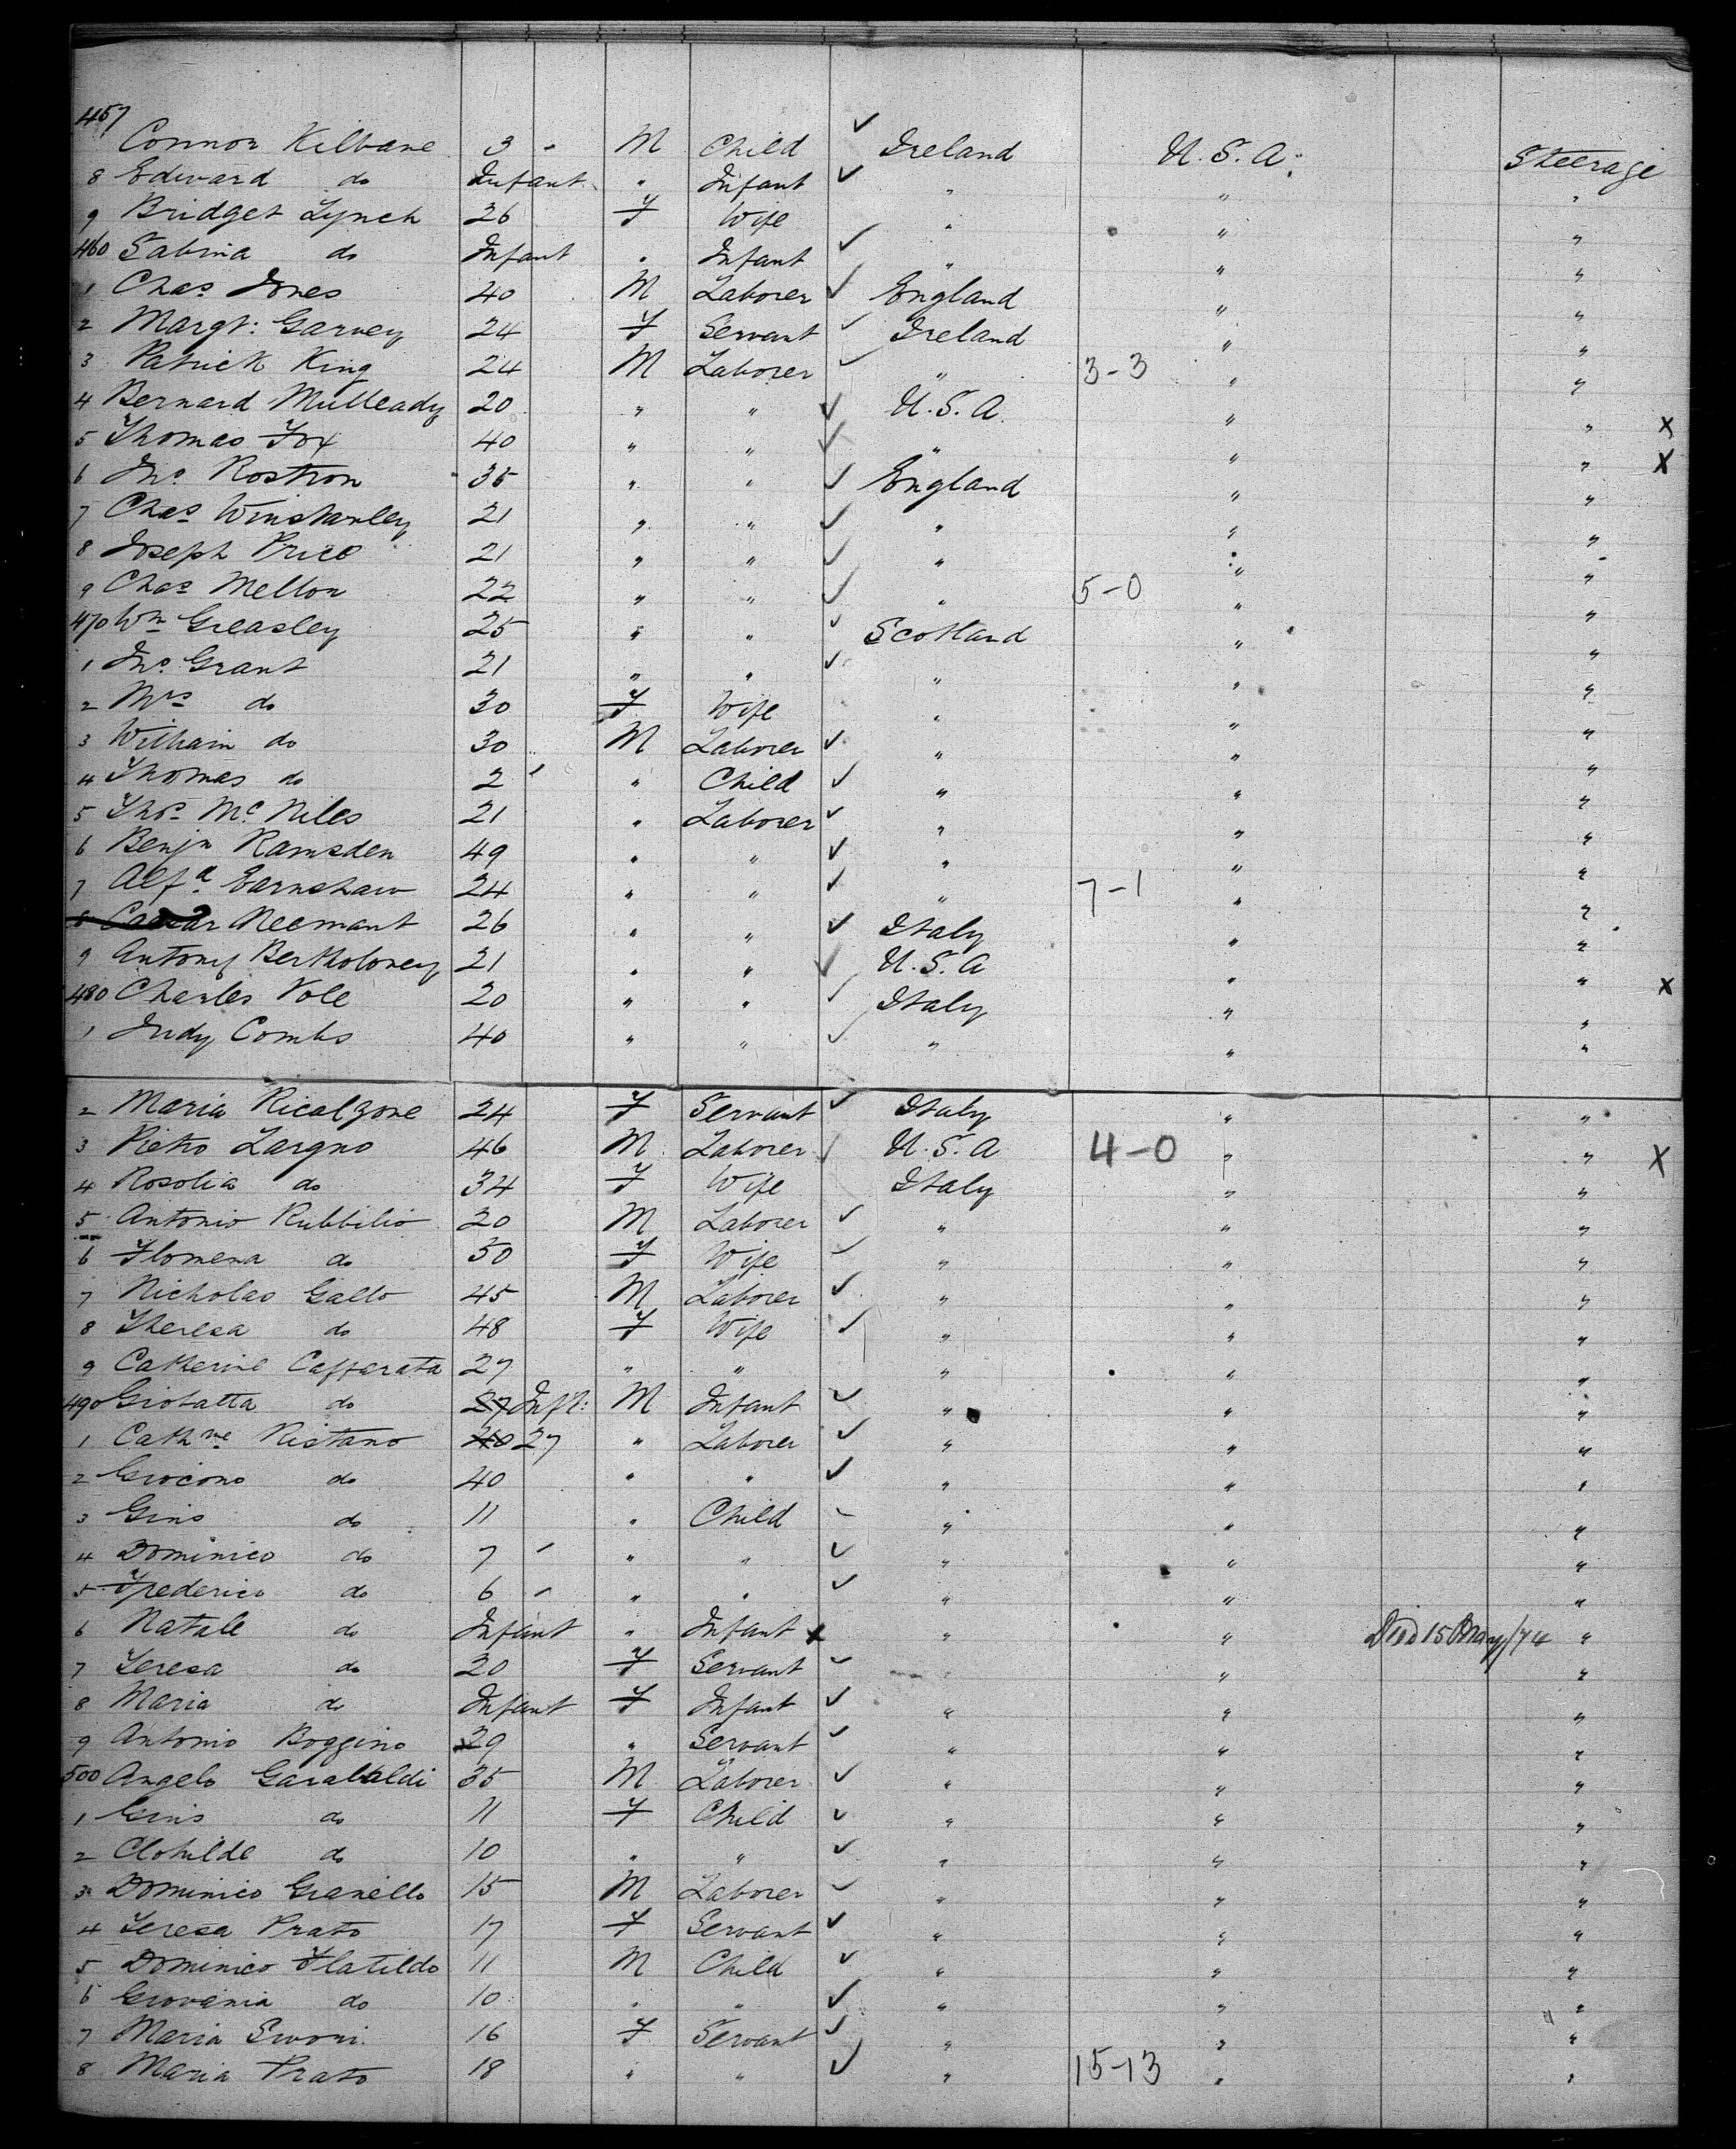 457 Connor Kilbane 3 - M Child ✓ Ireland U.S.A. Steerage
8 Edward do Infant " Infant ✓ " " "
9 Bridget Lynch 26 F Wife " " "
460 Sabina do Infant " Infant ✓ " " "
1 Chas Jones 40 M Laborer ✓ England " "
2 Margt: Garvey 24 F Servant ✓ Ireland " "
3 Patrick King 24 M Laborer ✓ " 3-3 " "
4 Bernard Mulleady 20 " " ✓ U.S.A. " " X
5 Thomas Fox 40 " " ✓ " " " X
6 Jno Rostron 35 " " ✓ England " "
7 Chas Winstanley 21 " " ✓ " " "
8 Joseph Price 21 " " ✓ " " "
9 Chas Mellor 22 " " ✓ " 5-0 " "
470 Wm Greasley 25 " " ✓ Scotland " "
1 Jno Grant 21 " " ✓ " " "
2 Mrs do 30 F Wife " " "
3 William do 30 M Laborer ✓ " " "
4 Thomas do 2 ' " Child ✓ " " "
5 Thos McNiles 21 " Laborer ✓ " " "
6 Benjn Ramsden 49 " " ✓ " " "
7 Alfd Earnshaw 24 " " ✓ " 7-1 " "
8 Caesar Neemant 26 " " ✓ Italy " "
9 Antony Bertholomey 21 " " ✓ U.S.A " " X
480 Charles Vole 20 " " ✓ Italy " "
1 Judy Combs 40 " " ✓ " " "
2 Maria Ricalzone 24 F Servant ✓ Italy " "
3 Pietro Largno 46 M Laborer ✓ U.S.A 4-0 " " X
4 Rosolia do 34 F Wife Italy " "
5 Antonio Rubbilio 20 M Laborer ✓ " " "
6 Flomena do 50 F Wife ✓ " " "
7 Nicholas Gallo 45 M Laborer ✓ " " "
8 Theresa do 48 F Wife ✓ " " "
9 Catherine Cafferata 27 " " " " "
490 Giobatta do 27 Inft: M Infant ✓ " " "
1 Cathne Ristano 40 27 " Laborer ✓ " " "
2 Giocono do 40 " " ✓ " " "
3 Gino do 11 " Child ✓ " " "
4 Dominico do 7 ' " " ✓ " " "
5 Frederico do 6 ' " " ✓ " " "
6 Natale do Infant " Infant X " " Died 15 May/74 "
7 Teresa do 20 F Servant ✓ " " "
8 Maria do Infant F Infant ✓ " " "
9 Antonio Boggino 29 " Servant ✓ " " "
500 Angelo Garabaldi 35 M Laborer ✓ " " "
1 Ginis do 11 F Child ✓ " " "
2 Clotilde do 10 " " ✓ " " "
3 Dominico Granello 15 M Laborer ✓ " " "
4 Teresa Prato 17 F Servant ✓ " " "
5 Dominico Flatildo 11 M Child ✓ " " "
6 Giovania do 10 " " ✓ " " "
7 Maria 16 F Servant ✓ " " "
8 Maria Prato 18 " " ✓ " 15-13 " "